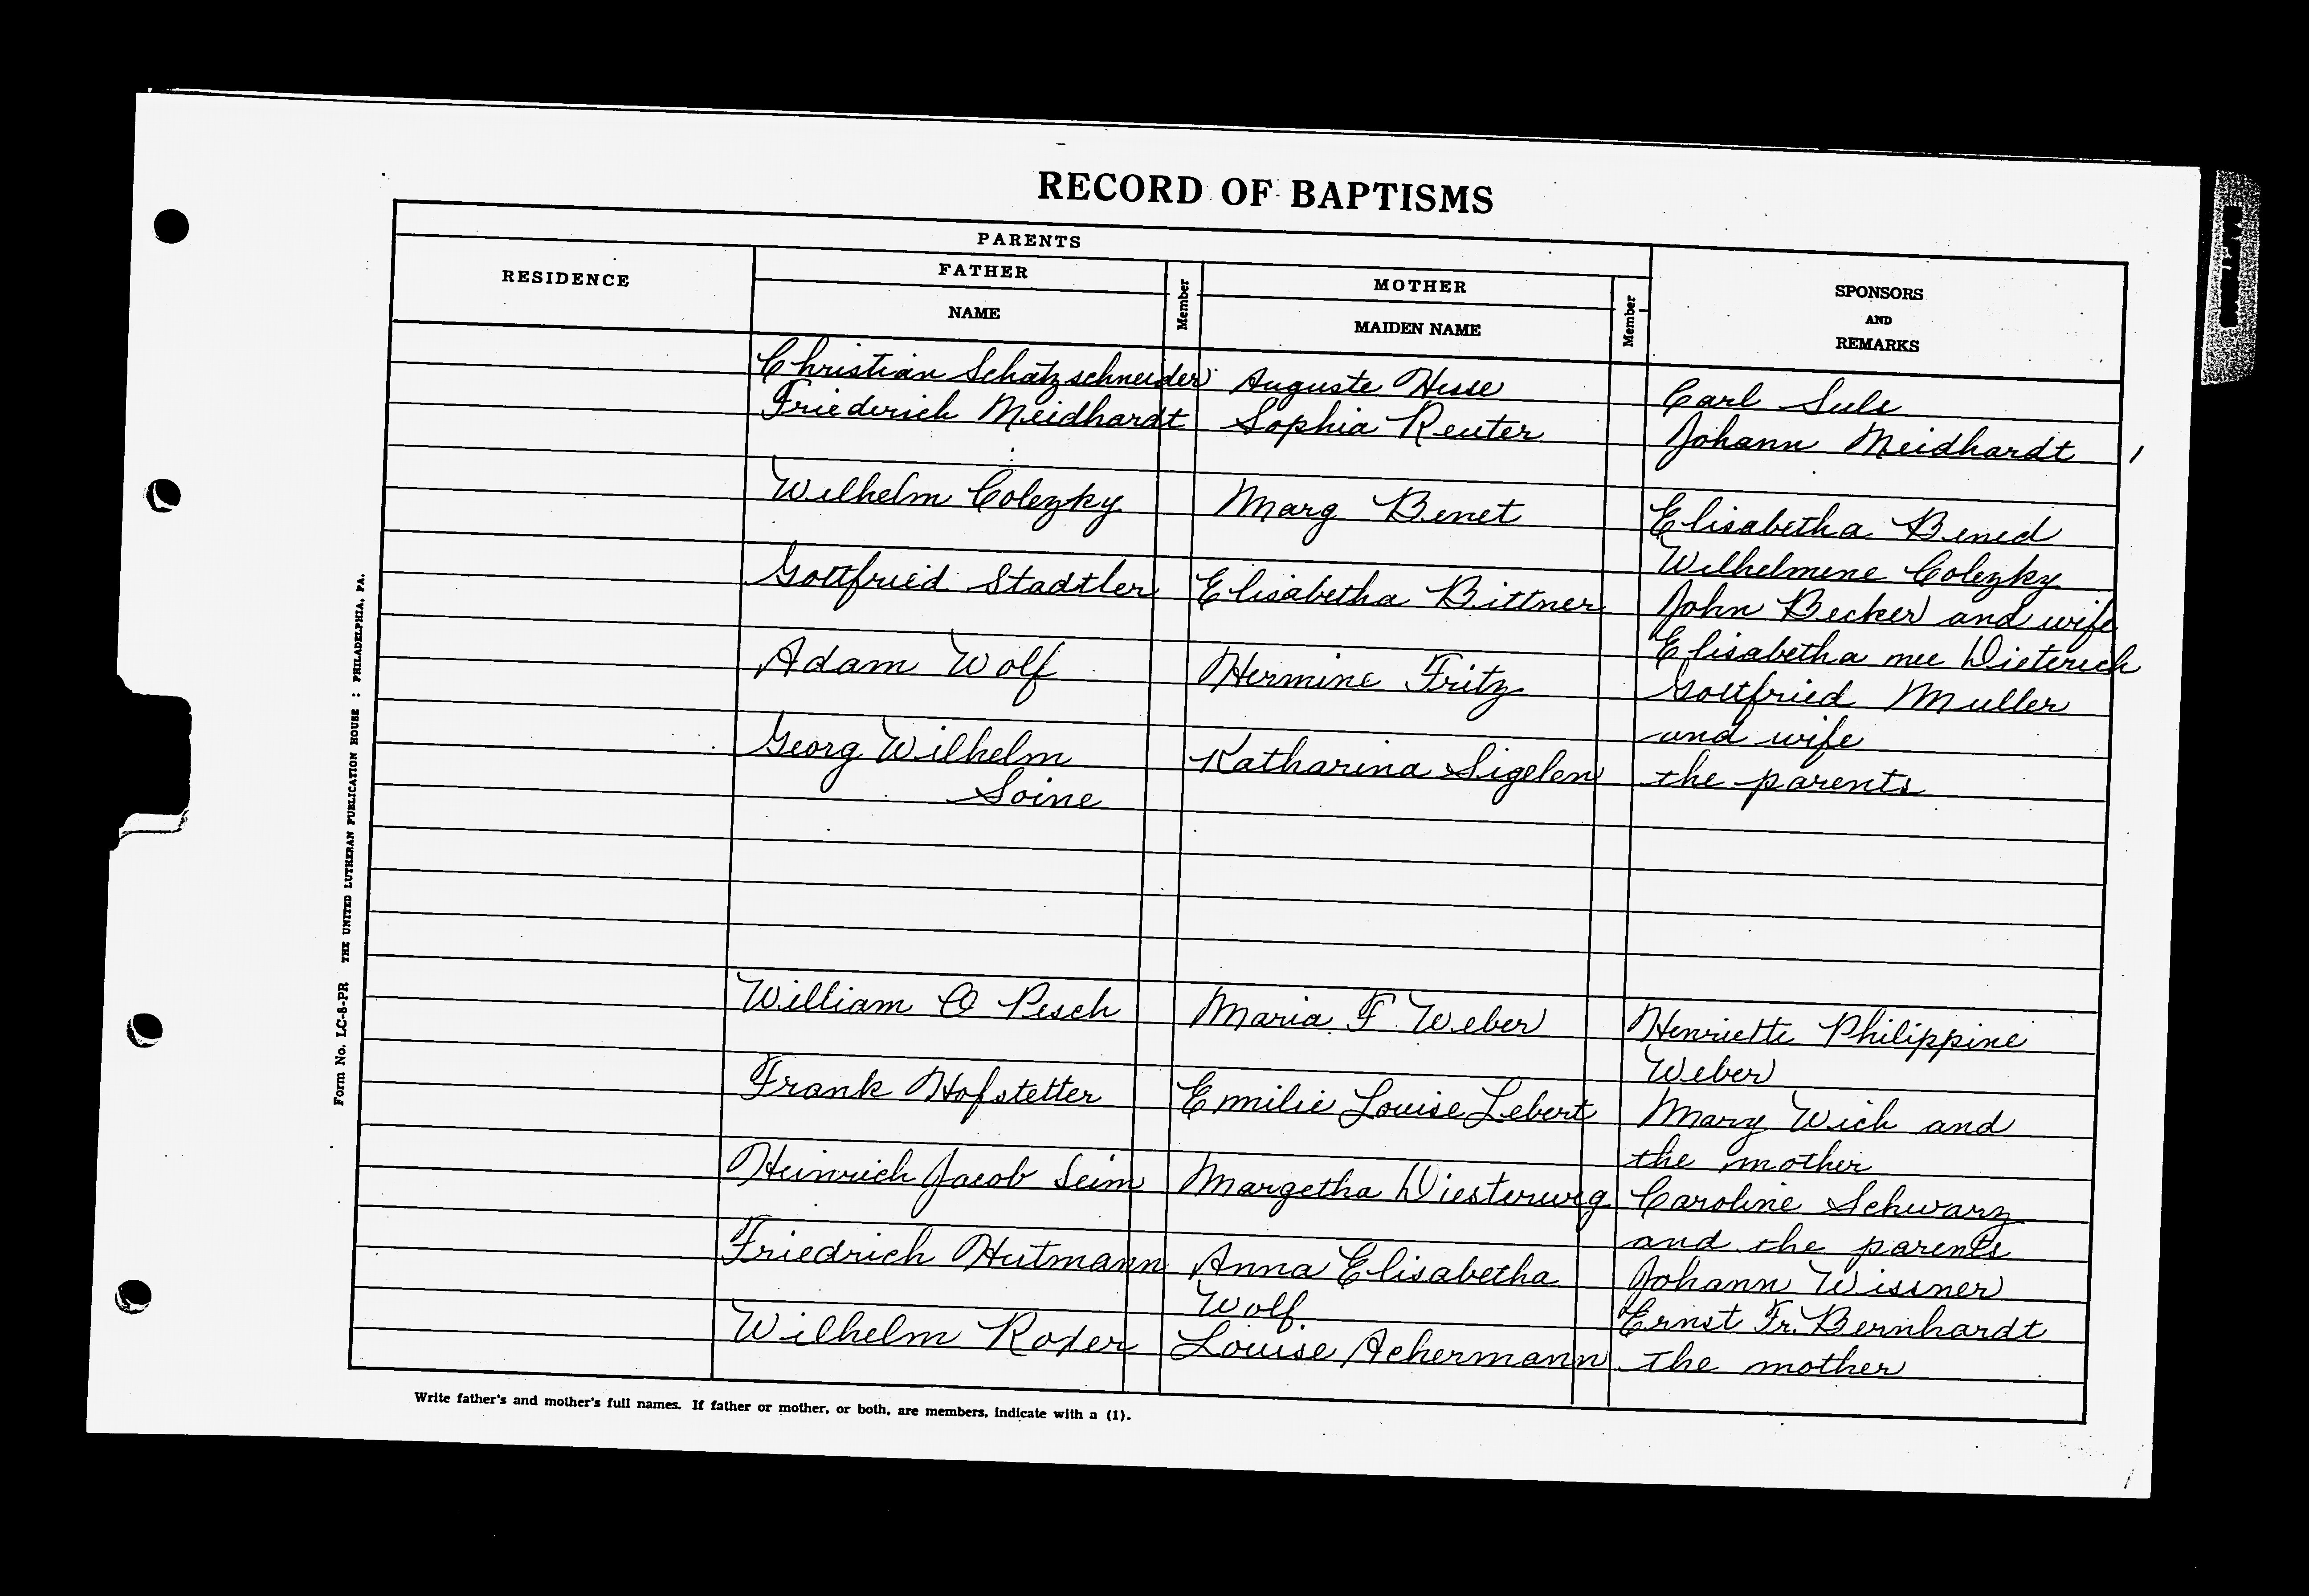 RECORD OF BAPTISMS
PARENTS
RESIDENCE
FATHER
NAME
Member
MOTHER
MAIDEN NAME
Member
SPONSORS
AND
REMARKS
Christian Schatzschneider Auguste Hesse Carl Sule
Friederich Meidhardt Sophia Reuter Johann Meidhardt
Wilhelm Colezky Marg Benet Elisabetha Bened
Wilhelmene Colezky
Gottfried Stadtler Elisabetha Bittner John Becker and wife
Elisabetha nee Dieterich
Adam Wolf Hermine Fritz Gottfried Muller
and wife
Georg Wilhelm Katharina Sigelen the parents
Soine
William O Pesch Maria F. Weber Henriette Philippine
Weber
Frank Hofstetter Emilie Louise Lebert Mary Wich and
the mother
Heinrich Jacob Seim Margetha Diesterweg Caroline Schwarz
and the parents
Friedrich Hutmann Anna Elisabetha Johann Wissner
Wolf Ernst Fr. Bernhardt
Wilhelm Roder Louise Achermann the mother
Write father's and mother's full names. If father or mother, or both, are members, indicate with a (1).
Form No. LC-8-PR THE UNITED LUTHERAN PUBLICATION HOUSE : PHILADELPHIA, PA.